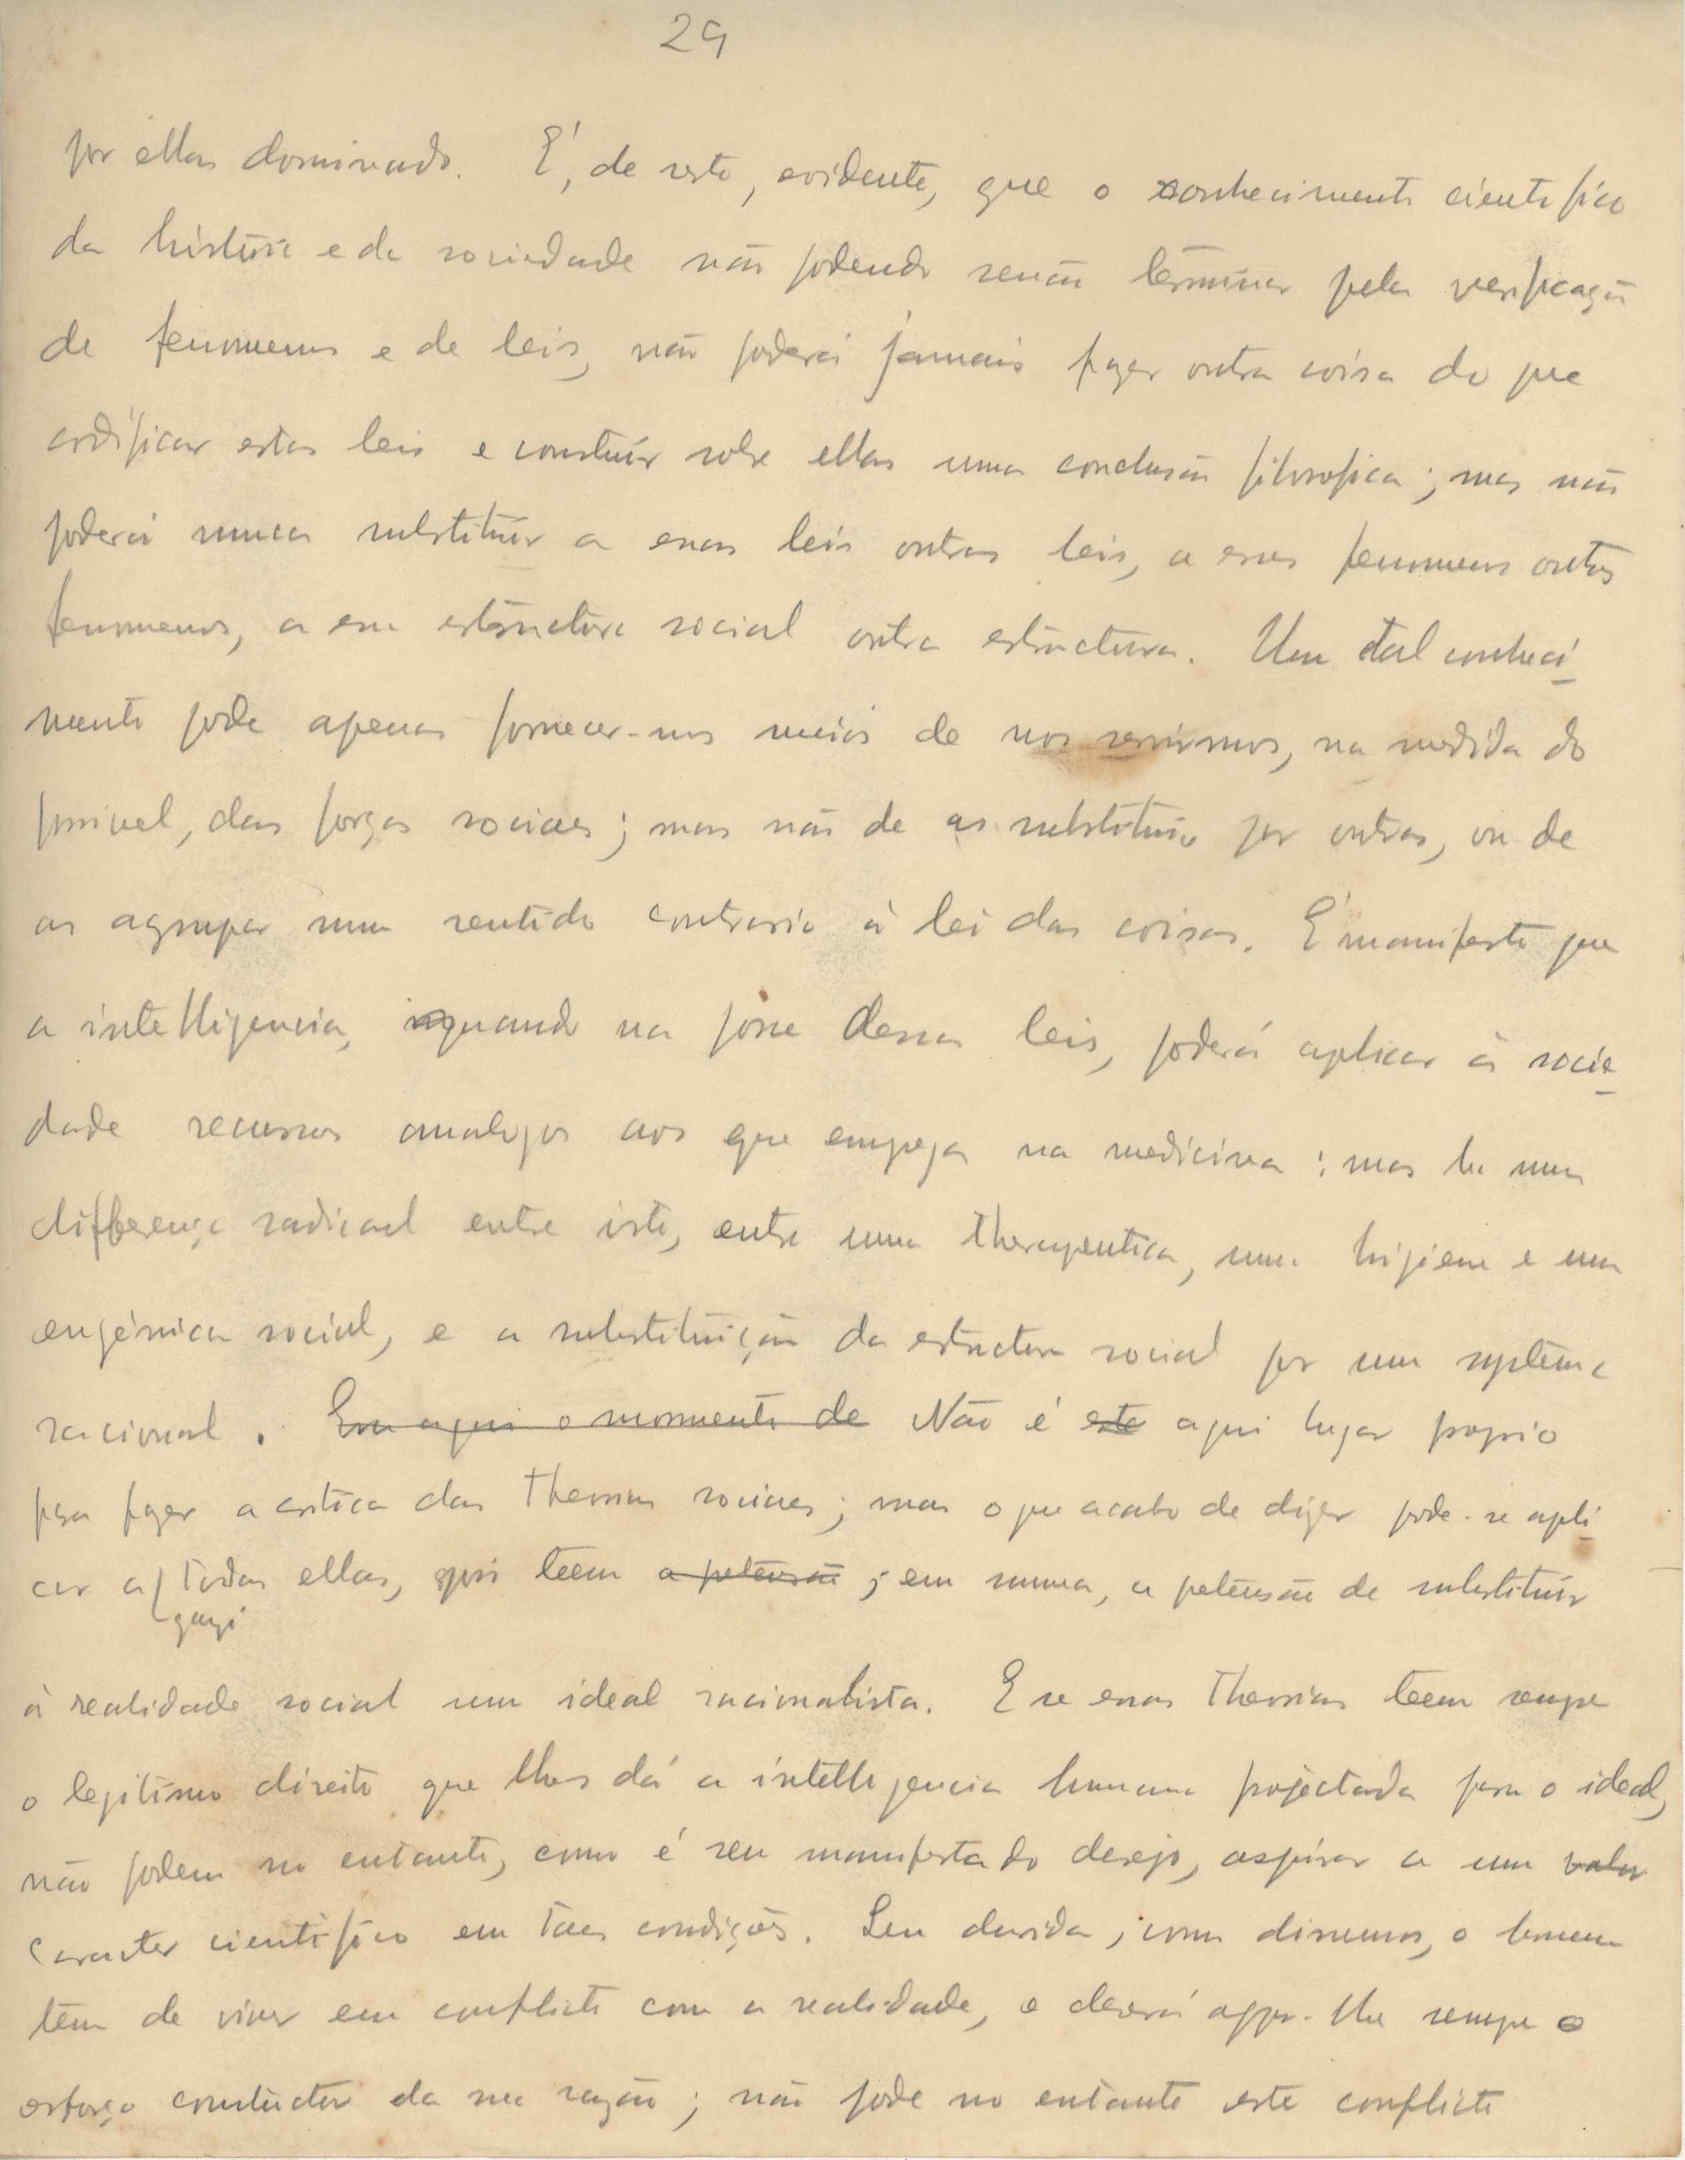 29
por ellas dominado. É, de resto, evidente, que o conhecimento cientifico
da história e da sociedade não podendo senão terminar pela verificação
de fenomenos e de leis, não poderá jamais fazer outra coisa do que
codificar estas leis e construir sobre ellas uma conclusão filosofica; mas não
poderá nunca substituir a essas leis outras leis, a esses fenomenos outros
fenomenos, a essa estructura social outra estructura. Um tal conheci-
mento pode apenas fornecer-nos meios de nos servirmos, na medida do
possivel, das forças sociaes; mas não de as substituir por outras, ou de
as agrupar num sentido contrario á lei das coisas. É manifesto que
a intelligencia, quando na posse dessas leis, poderá aplicar á socie-
dade recursos analogos aos que emprega na medicina; mas ha uma
differença radical entre isto, entre uma therapeutica, uma higiene e uma
eugénica social, e a substituição da estructura social por um systema
racional. Era aqui o momento de Não é este aqui lugar proprio
para fazer a critica das theorias sociaes; mas o que acabo de dizer pode-se apli-
car a todas ellas, pois teem a pretensão; em summa, a pretensão de substituir
quazi
á realidade social um ideal racionalista. E se essas theorias teem sempre
o legitimo direito que lhes dá a intelligencia humana projectada para o ideal,
não podem no entanto, como é seu manifestado desejo, aspirar a um valor
caracter cientifico em taes condições. Sem duvida, como dissemos, o homem
tem de viver em conflicto com a realidade, e deverá oppor-lhe sempre o
esforço constructor da sua razão; não pode no entanto este conflicto